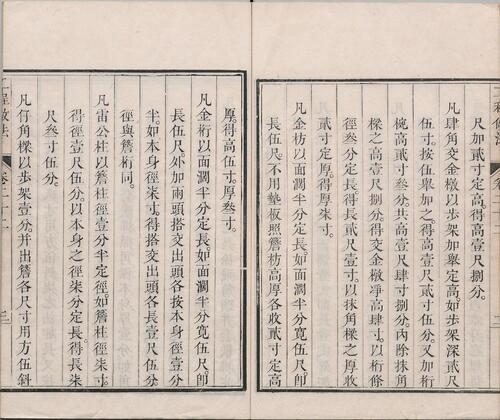 尺加貳寸定高得高壹尺。
凡肆角交金橔以步架加舉定高如步架深貳尺
伍寸。按伍舉加之。得高壹尺貳寸伍分。又加桁
椀高貳寸叁分。共高壹尺肆寸捌分。內除抹角
樑之高壹尺捌分。得交金橔凈高肆寸。以桁條
徑叁分定長得長貳尺壹寸。以抹角樑之厚收
貳寸定厚。得厚柒寸。
凡金枋以面濶半分定長。如面濶半分寬伍尺卽
長伍尺。不用墊板照簷枋高厚各收貳寸定高
厚。得高伍寸。厚叁寸。
凡金桁以面濶半分定長。如面濶半分寬伍尺卽
長伍尺。外加兩頭搭交出頭各按本身徑壹分
半。如本身徑柒寸。得搭交出頭各長壹尺伍分。
徑與簷桁同。
凡雷公柱以簷柱徑壹分半定徑。如簷柱徑柒寸。
得徑壹尺伍分。以本身之徑柒分定長。得長柒
尺叁寸伍分。
凡仔角樑以步架壹分。并出簷各尺寸用方伍斜
工程做法
卷二十二
三